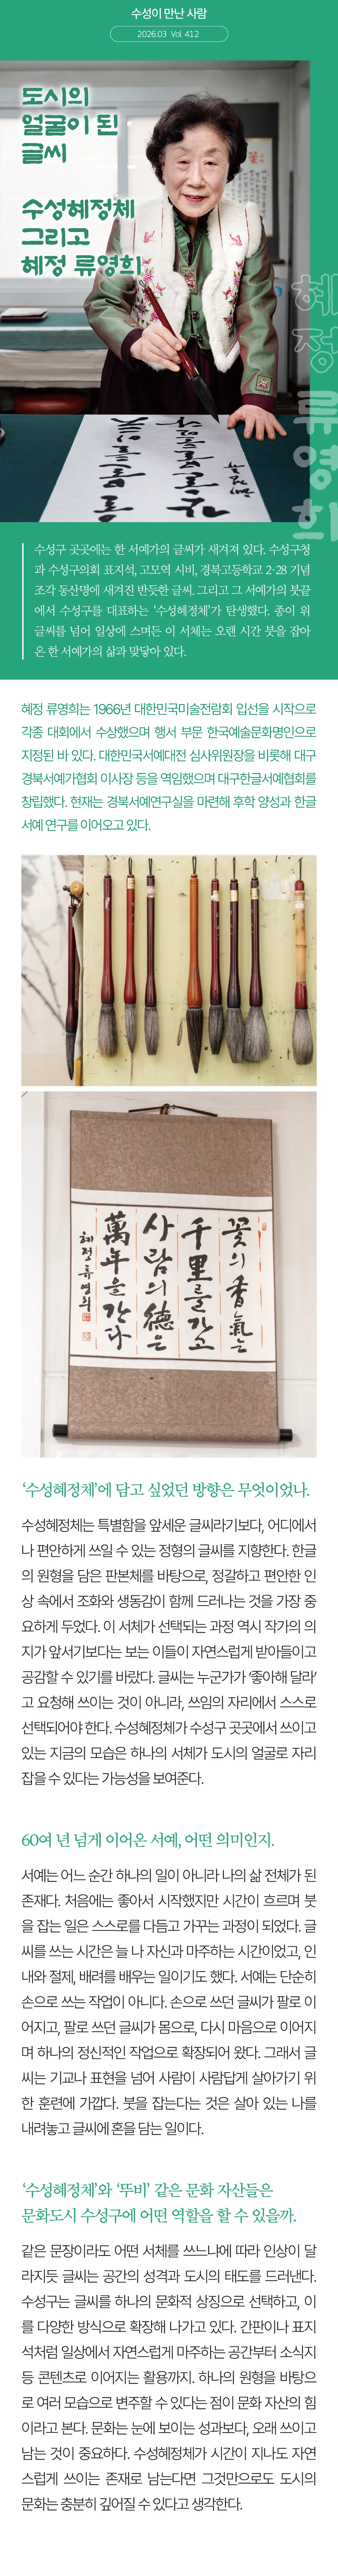 수성이 만난 사람
2026.03 Vol. 412
도시의
얼굴이 된
글씨
수성혜정체
그리고
혜정 류영희
혜정 류영희
수성구 곳곳에는 한 서예가의 글씨가 새겨져 있다. 수성구청
과 수성구의회 표지석, 고모역 시비, 경북고등학교 2·28 기념
조각 동산명에 새겨진 반듯한 글씨. 그리고 그 서예가의 붓끝
에서 수성구를 대표하는 ‘수성혜정체’가 탄생했다. 종이 위
글씨를 넘어 일상에 스며든 이 서체는 오랜 시간 붓을 잡아
온 한 서예가의 삶과 맞닿아 있다.
혜정 류영희는 1966년 대한민국미술전람회 입선을 시작으로
각종 대회에서 수상했으며 행서 부문 한국예술문화명인으로
지정된 바 있다. 대한민국서예대전 심사위원장을 비롯해 대구
경북서예가협회 이사장 등을 역임했으며 대구한글서예협회를
창립했다. 현재는 경북서예연구실을 마련해 후학 양성과 한글
서예 연구를 이어오고 있다.
꽃의 香氣는
千里를 가고
사람의 德은
萬年을 간다
혜정 류영희
‘수성혜정체’에 담고 싶었던 방향은 무엇이었나.
수성혜정체는 특별함을 앞세운 글씨라기보다, 어디에서
나 편안하게 쓰일 수 있는 정형의 글씨를 지향한다. 한글
의 원형을 담은 판본체를 바탕으로, 정갈하고 편안한 인
상 속에서 조화와 생동감이 함께 드러나는 것을 가장 중
요하게 두었다. 이 서체가 선택되는 과정 역시 작가의 의
지가 앞서기보다는 보는 이들이 자연스럽게 받아들이고
공감할 수 있기를 바랐다. 글씨는 누군가가 ‘좋아해 달라’
고 요청해 쓰이는 것이 아니라, 쓰임의 자리에서 스스로
선택되어야 한다. 수성혜정체가 수성구 곳곳에서 쓰이고
있는 지금의 모습은 하나의 서체가 도시의 얼굴로 자리
잡을 수 있다는 가능성을 보여준다.
60여 년 넘게 이어온 서예, 어떤 의미인지.
서예는 어느 순간 하나의 일이 아니라 나의 삶 전체가 된
존재다. 처음에는 좋아서 시작했지만 시간이 흐르며 붓
을 잡는 일은 스스로를 다듬고 가꾸는 과정이 되었다. 글
씨를 쓰는 시간은 늘 나 자신과 마주하는 시간이었고, 인
내와 절제, 배려를 배우는 일이기도 했다. 서예는 단순히
손으로 쓰는 작업이 아니다. 손으로 쓰던 글씨가 팔로 이
어지고, 팔로 쓰던 글씨가 몸으로, 다시 마음으로 이어지
며 하나의 정신적인 작업으로 확장되어 왔다. 그래서 글
씨는 기교나 표현을 넘어 사람이 사람답게 살아가기 위
한 훈련에 가깝다. 붓을 잡는다는 것은 살아 있는 나를
내려놓고 글씨에 혼을 담는 일이다.
‘수성혜정체’와 ‘뚜비’ 같은 문화 자산들은
문화도시 수성구에 어떤 역할을 할 수 있을까.
같은 문장이라도 어떤 서체를 쓰느냐에 따라 인상이 달
라지듯 글씨는 공간의 성격과 도시의 태도를 드러낸다.
수성구는 글씨를 하나의 문화적 상징으로 선택하고, 이
를 다양한 방식으로 확장해 나가고 있다. 간판이나 표지
석처럼 일상에서 자연스럽게 마주하는 공간부터 소식지
등 콘텐츠로 이어지는 활용까지. 하나의 원형을 바탕으
로 여러 모습으로 변주할 수 있다는 점이 문화 자산의 힘
이라고 본다. 문화는 눈에 보이는 성과보다, 오래 쓰이고
남는 것이 중요하다. 수성혜정체가 시간이 지나도 자연
스럽게 쓰이는 존재로 남는다면 그것만으로도 도시의
문화는 충분히 깊어질 수 있다고 생각한다.